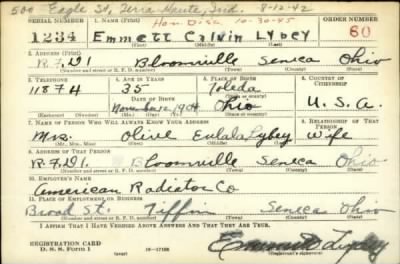 500 Eagle St, Terre Haute, Ind. 8-12-42
SERIAL NUMBER 1. NAME (Print) Hon. Disc. 10-30-45 ORDER NUMBER
1234 Emmett Calvin Lybey 60
2. ADDRESS (Print)
R.F.D.1 Bloomville Seneca Ohio
(Number and street or R. F. D. number) (Town) (County) (State)
3. TELEPHONE 4. AGE IN YEARS 5. PLACE OF BIRTH 6. COUNTRY OF CITIZENSHIP
1187H 35 Toledo
DATE OF BIRTH (Town or county)
November 12 1904 Ohio U.S.A.
(Mo.) (Day) (Yr.) (State or country)
7. NAME OF PERSON WHO WILL ALWAYS KNOW YOUR ADDRESS 8. RELATIONSHIP OF THAT PERSON
Mrs. Olive Eulala Lybey Wife
(Mr., Mrs., Miss) (First) (Middle) (Last)
9. ADDRESS OF THAT PERSON
R.F.D.1. Bloomville Seneca Ohio
(Number and street or R. F. D. number) (Town) (County) (State)
10. EMPLOYER'S NAME
American Radiator Co
11. PLACE OF EMPLOYMENT OR BUSINESS
Broad St. Tiffin Seneca Ohio
(Number and street or R. F. D. number) (Town) (County) (State)
I AFFIRM THAT I HAVE VERIFIED ABOVE ANSWERS AND THAT THEY ARE TRUE.
REGISTRATION CARD
D. S. S. Form 1 16-17105 Emmett Lybey